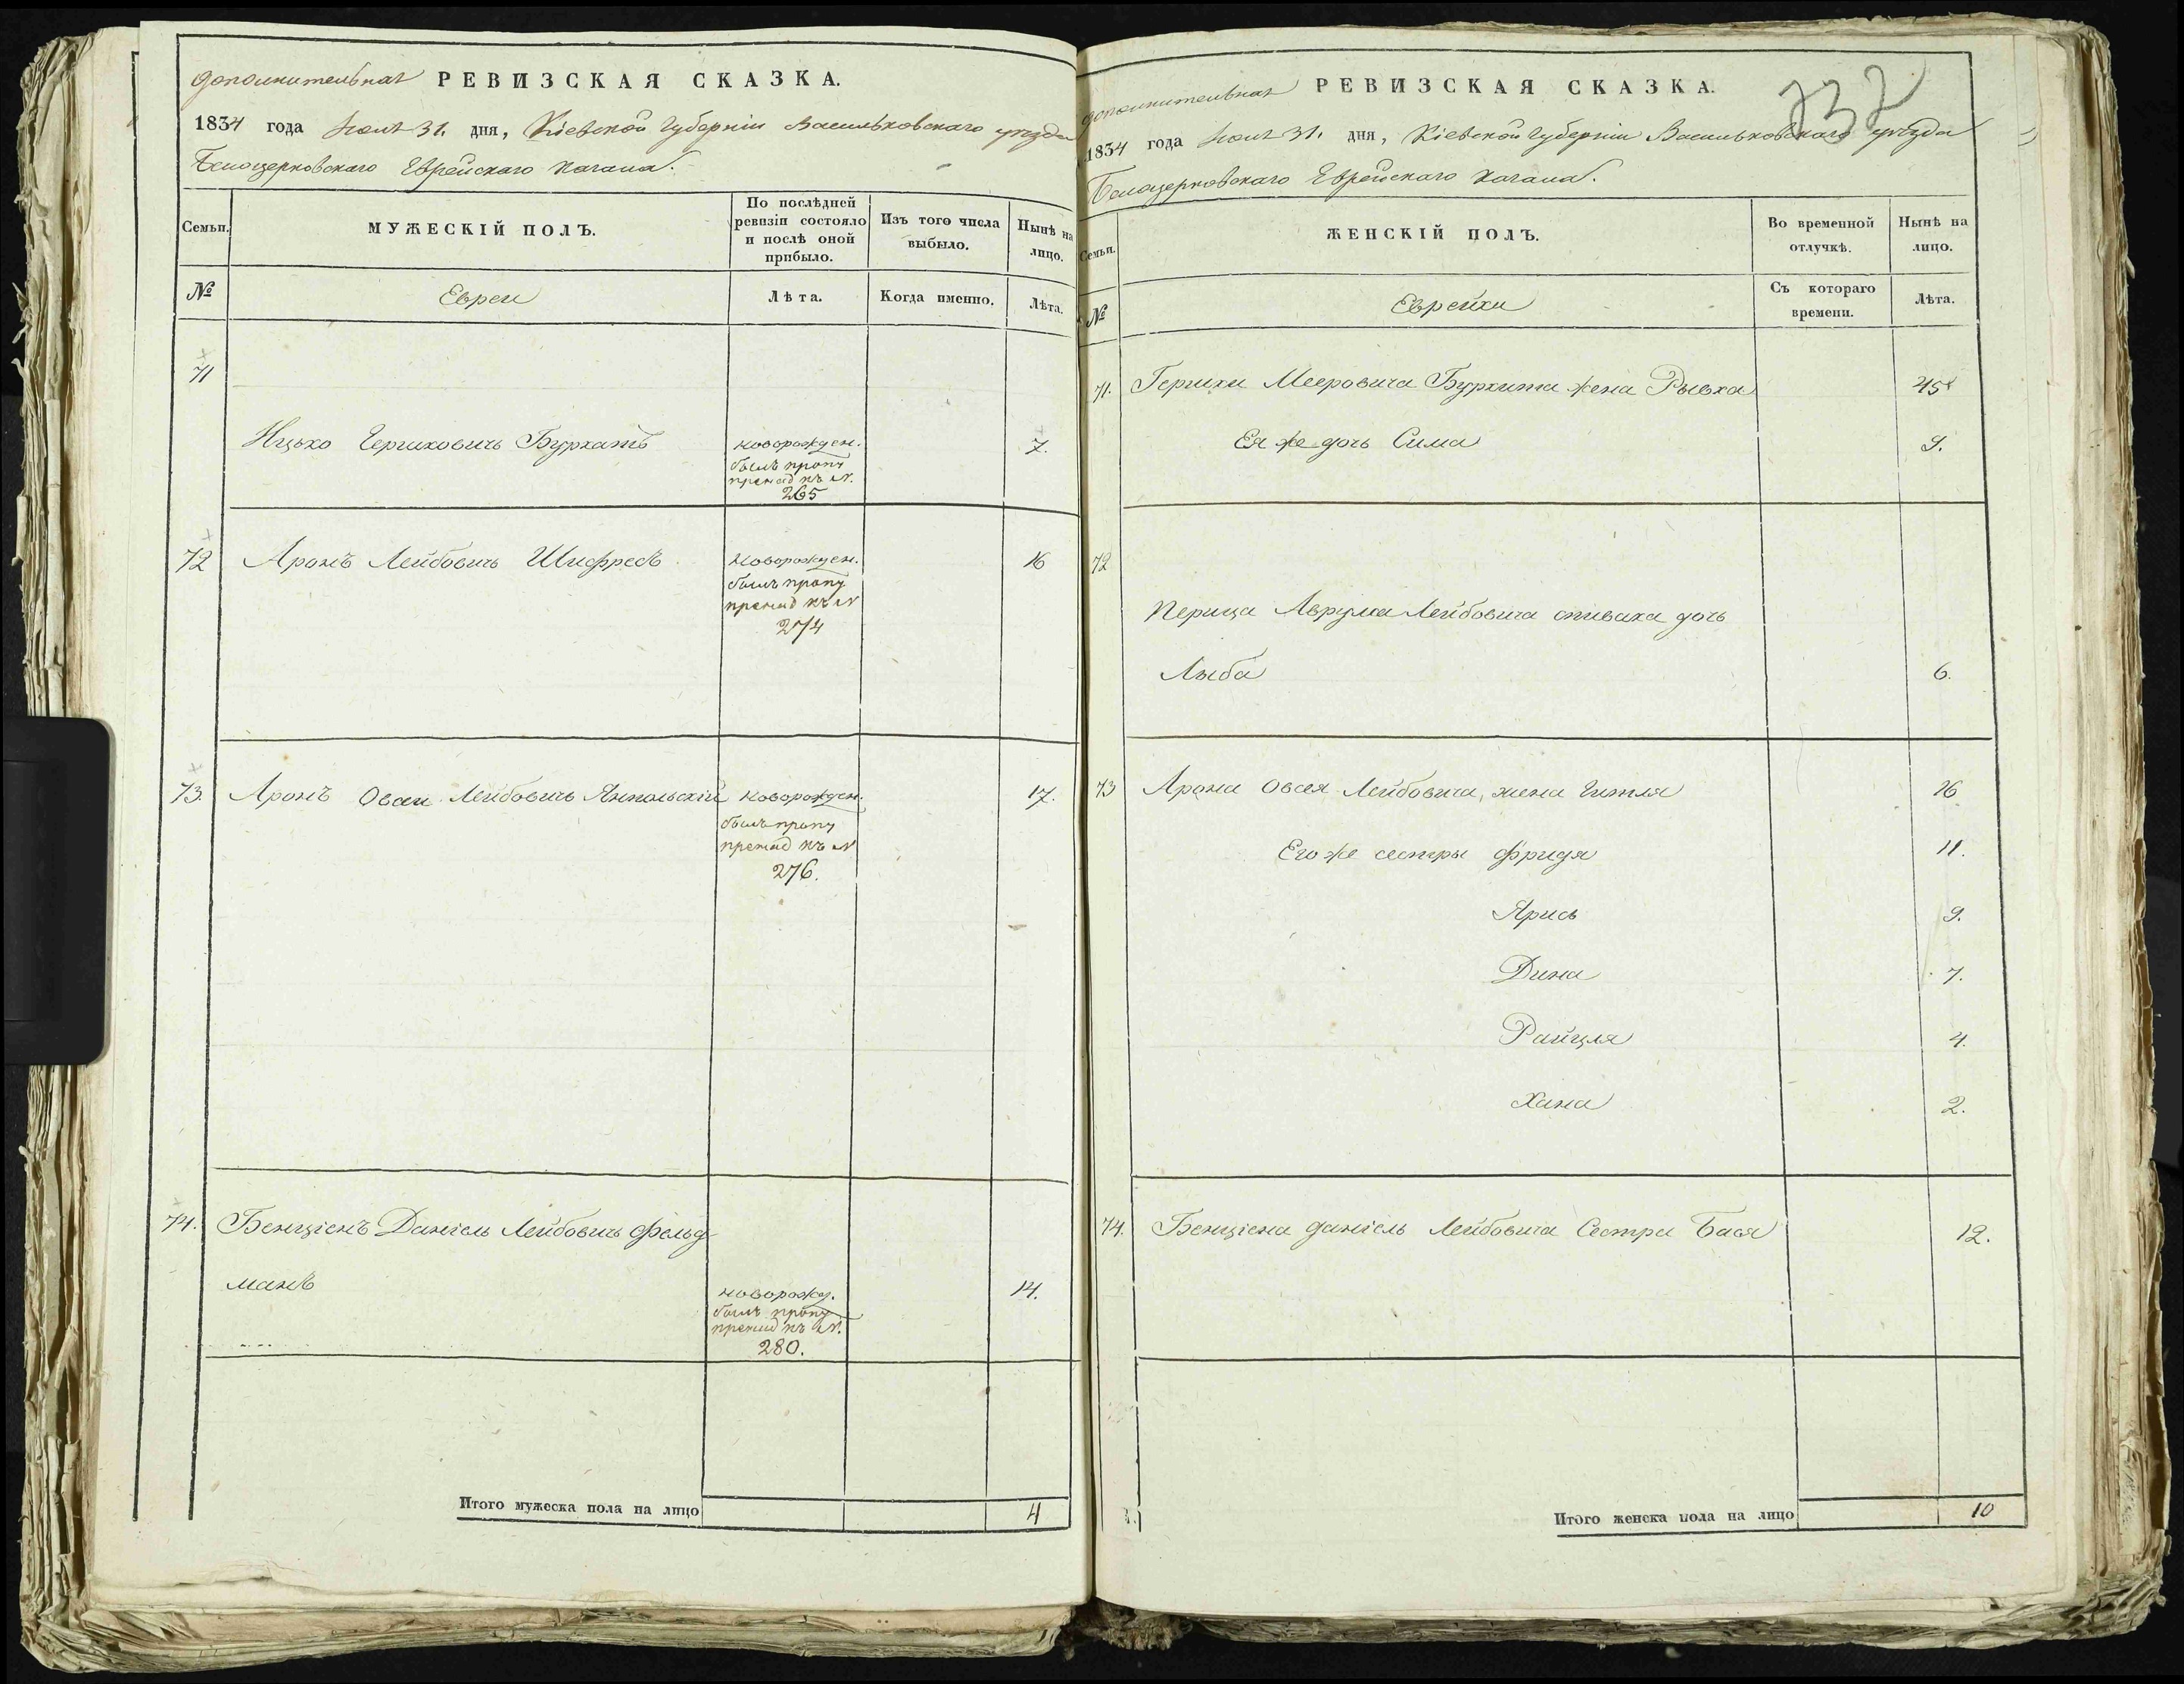 дополнительная РЕВИЗСКАЯ СКАЗКА.
1834 года Іюля 31. дня, Кіевской Губерніи Васильковскаго уезда
Белоцерковскаго Еврейскаго Кагала.
Семьи.
МУЖЕСКІЙ ПОЛЪ.
По послѣдней ревизіи состояло и послѣ оной прибыло.
Изъ того числа выбыло.
Нынѣ на лицо.
№
Евреи
Лѣта.
Когда именно.
Лѣта.
71
Ицько Гершковичь Буркатъ новорожден. 7.
былъ пропу
къ N.
265
72 Аронъ Лейбовичь новорожден. 16
былъ пропу
къ N
274
73. Аронъ Овсей Лейбовичь Ямпольскій новорожден. 17.
былъ пропу
къ N
276.
74. Бенціенъ Даніель Лейбовичь Фельд-
манъ новорожд. 14.
былъ пропу
къ N.
280.
Итого мужеска пола на лицо 4
дополнительная РЕВИЗСКАЯ СКАЗКА.
737
1834 года Іюля 31. дня, Кіевской Губерніи Васильковскаго уезда
Белоцерковскаго Еврейскаго Кагала.
Семьи.
ЖЕНСКІЙ ПОЛЪ.
Во временной отлучкѣ.
Нынѣ на лицо.
№
Еврейки
Съ котораго времени.
Лѣта.
71. Гершки Мееровича Бурката жена Рывка 45
Ея же дочь Сима 9.
72
Аврума Лейбовича спивака дочь
Лыба 6.
73 Арона Овсея Лейбовича, жена Гитля 16
Его же сестры Фридя 11.
Ярись 9.
Дина 7.
Райцля 4.
Хана 2.
74. Бенціена Даніель Лейбовича Сестра Бася 12.
Итого женска пола на лицо 10